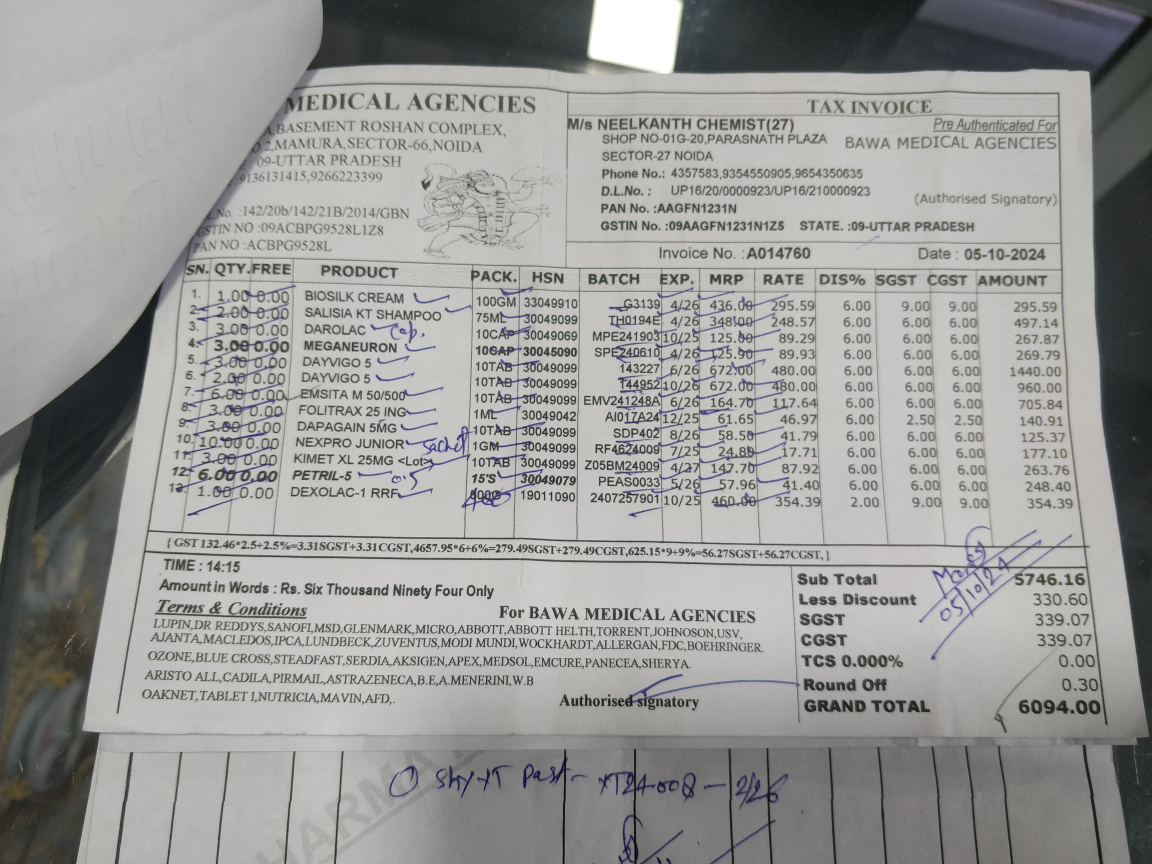 MEDICAL AGENCIES
BASEMENT ROSHAN COMPLEX,
MAMURA,SECTOR-66,NOIDA
09-UTTAR PRADESH
9136131415,9266223399
No. :142/20b/142/21B/2014/GBN
GSTIN NO :09ACBPG9528L1Z8
PAN NO :ACBPG9528L
TAX INVOICE
M/s NEELKANTH CHEMIST(27)
SHOP NO-01G-20,PARASNATH PLAZA
SECTOR-27 NOIDA
Phone No.: 4357583,9354550905,9654350635
D.L.No. : UP16/20/0000923/UP16/210000923
PAN No. :AAGFN1231N
GSTIN No. :09AAGFN1231N1Z5 STATE. :09-UTTAR PRADESH
Pre Authenticated For
BAWA MEDICAL AGENCIES
(Authorised Signatory)
Invoice No. :A014760 Date : 05-10-2024
SN. QTY. FREE PRODUCT PACK. HSN BATCH EXP. MRP RATE DIS% SGST CGST AMOUNT
1. 1.00 0.00 BIOSILK CREAM 100GM 33049910 G3139 4/26 436.00 295.59 6.00 9.00 9.00 295.59
2. 2.00 0.00 SALISIA KT SHAMPOO 75ML 30049099 TH0194E 4/26 348.00 248.57 6.00 9.00 9.00 497.14
3. 3.00 0.00 DAROLAC cap. 10CAP 30049069 MPE241903 10/25 125.00 89.29 6.00 6.00 6.00 267.87
4. 3.00 0.00 MEGANEURON 10CAP 30045090 SPE240610 4/26 125.90 89.93 6.00 6.00 6.00 269.79
5. 3.00 0.00 DAYVIGO 5 10TAB 30049099 143227 6/26 672.00 480.00 6.00 6.00 6.00 1440.00
6. 2.00 0.00 DAYVIGO 5 10TAB 30049099 144952 10/26 672.00 480.00 6.00 6.00 6.00 960.00
7. 6.00 0.00 EMSITA M 50/500 10TAB 30049099 EMV241248A 6/26 164.70 117.64 6.00 6.00 6.00 705.84
8. 3.00 0.00 FOLITRAX 25 ING 1ML 30049042 AI017A24 12/25 61.65 46.97 6.00 2.50 2.50 140.91
9. 3.00 0.00 DAPAGAIN 5MG 10TAB 30049099 SDP402 8/26 58.50 41.79 6.00 6.00 6.00 125.37
10. 10.00 0.00 NEXPRO JUNIOR sachet 1GM 30049099 RF4624009 7/25 24.80 17.71 6.00 6.00 6.00 177.10
11. 3.00 0.00 KIMET XL 25MG <Lot> 10TAB 30049099 Z05BM24009 4/27 147.70 87.92 6.00 6.00 6.00 263.76
12. 6.00 0.00 PETRIL-5 0.5 15'S 30049079 PEAS0033 5/26 57.96 41.40 6.00 6.00 6.00 248.40
13. 1.00 0.00 DEXOLAC-1 RRF 400 19011090 2407257901 10/25 460.00 354.39 2.00 9.00 9.00 354.39
{ GST 132.46*2.5+2.5%=3.31SGST+3.31CGST,4657.95*6+6%=279.49SGST+279.49CGST,625.15*9+9%=56.27SGST+56.27CGST,}
TIME : 14:15
Amount in Words : Rs. Six Thousand Ninety Four Only
Terms & Conditions
For BAWA MEDICAL AGENCIES
LUPIN,DR REDDYS,SANOFI,MSD,GLENMARK,MICRO,ABBOTT,ABBOTT HELTH,TORRENT,JOHNOSON,USV,
AJANTA,MACLEDOS,IPCA,LUNDBECK,ZUVENTUS,MODI MUNDI,WOCKHARDT,ALLERGAN,FDC,BOEHRINGER.
OZONE,BLUE CROSS,STEADFAST,SERDIA,AKSIGEN,APEX,MEDSOL,EMCURE,PANECEA,SHERYA.
ARISTO ALL,CADILA,PIRMAIL,ASTRAZENECA,B.E,A.MENERINI,W.B
OAKNET,TABLET I,NUTRICIA,MAVIN,AFD,.
Authorised signatory
05/10/24
Sub Total 5746.16
Less Discount 330.60
SGST 339.07
CGST 339.07
TCS 0.000% 0.00
Round Off 0.30
GRAND TOTAL 6094.00
XT24008 - 2/26
HARMA